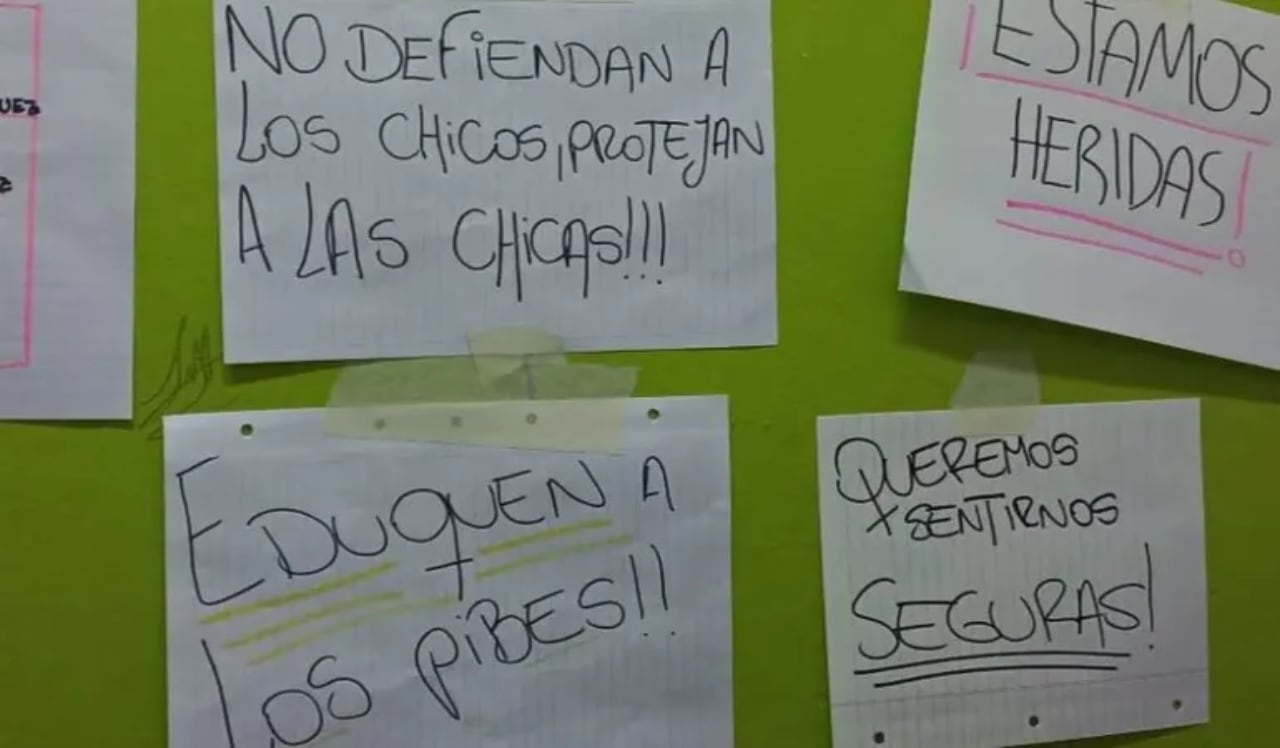 NO DEFIENDAN A
LOS CHICOS, PROTEJAN
A LAS CHICAS!!!
¡ESTAMOS
HERIDAS!
EDUQUEN A
LOS PIBES!!
QUEREMOS
SENTIRNOS
SEGURAS!